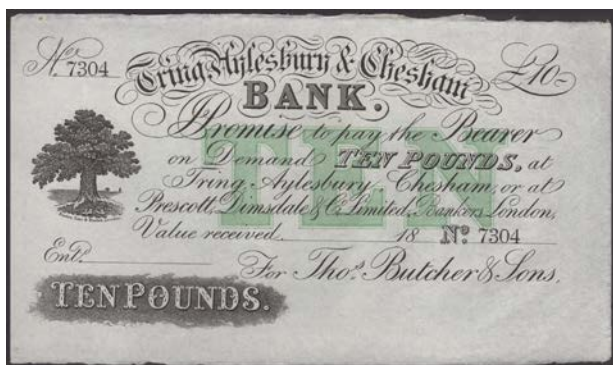 No. 7304
Tring, Aylesbury & Chesham
£10-
BANK.
Promise to pay the Bearer
on Demand TEN POUNDS, at
Tring, Aylesbury, Chesham, or at
Prescott, Dimsdale & Co. Limited, Bankers London,
Value received 18 No. 7304
TEN
Entd.
For Thos. Butcher & Sons.
TEN POUNDS.